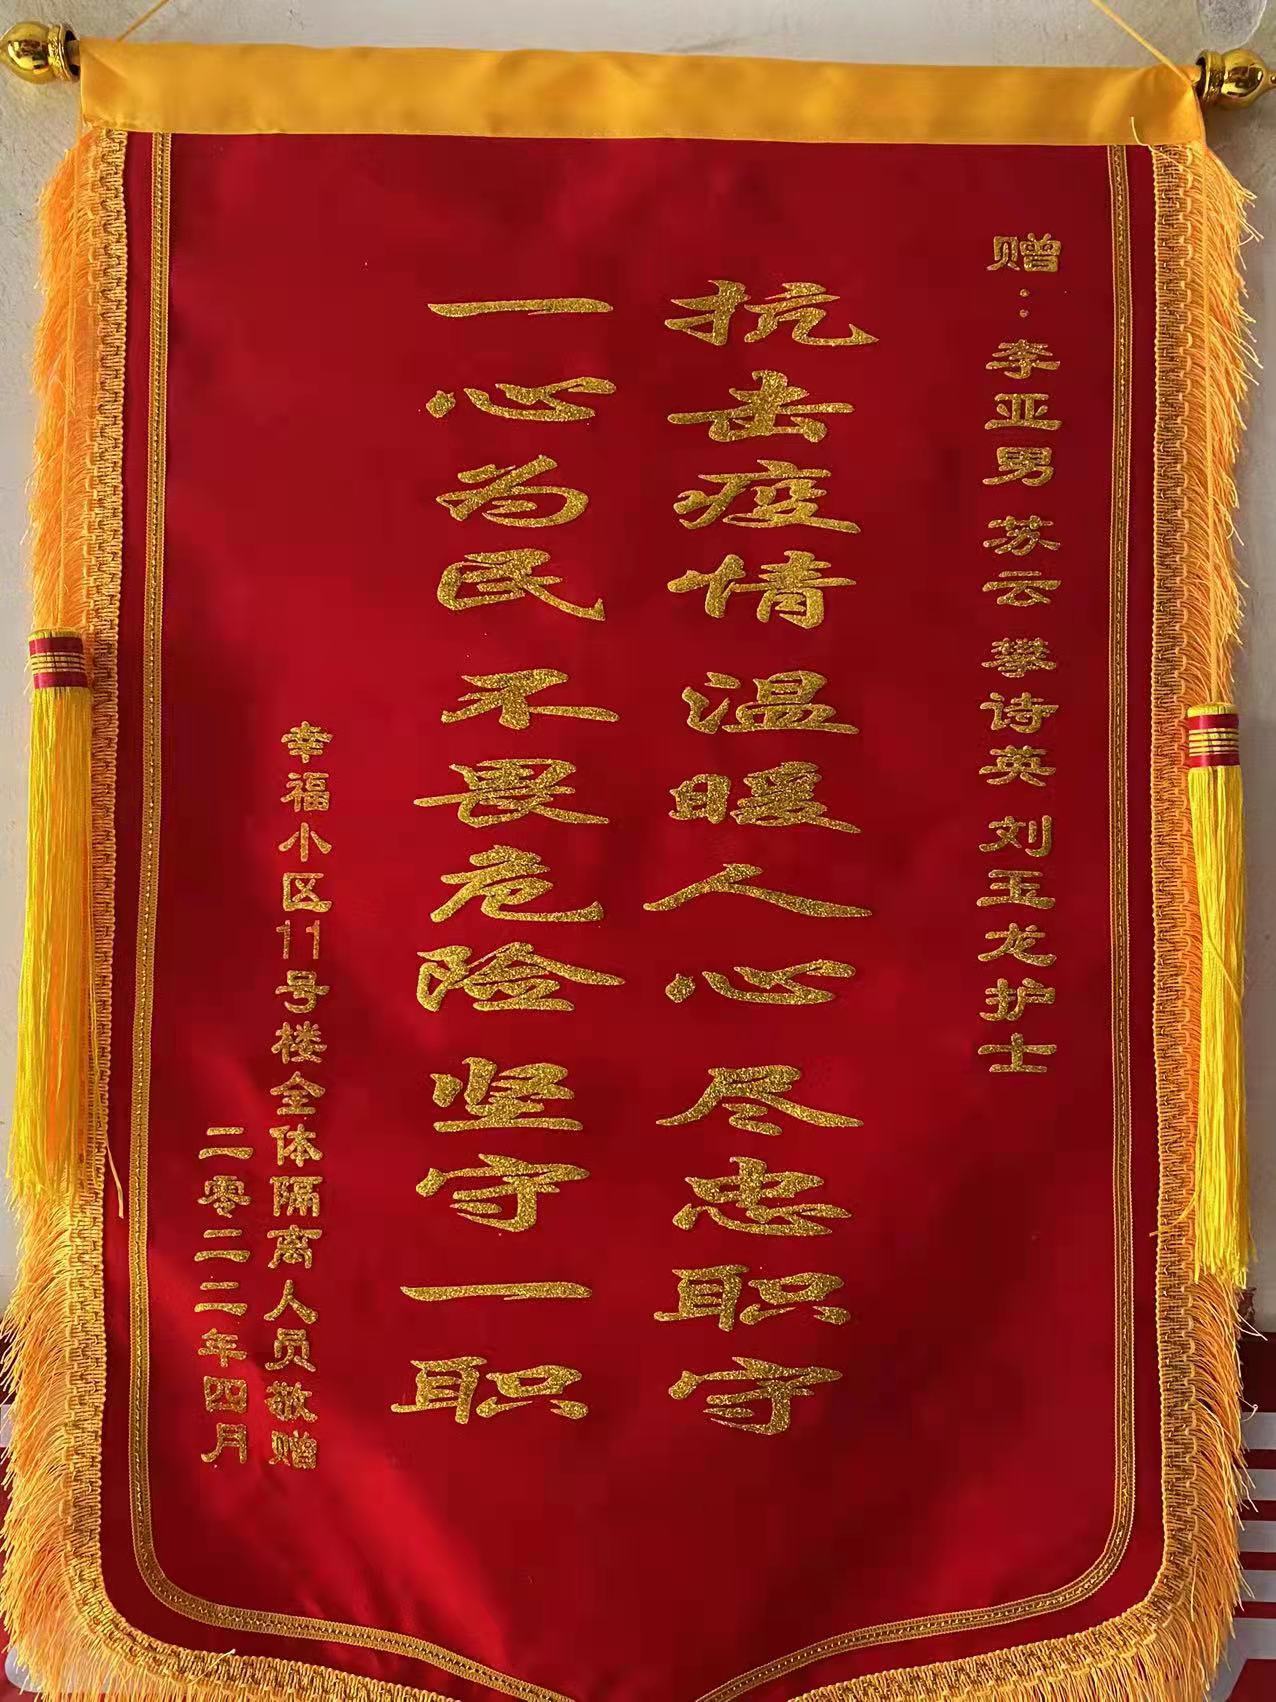 赠：李亚男 苏云 攀诗英 刘玉龙护士
抗击疫情 温暖人心 尽忠职守
一心为民 不畏危险 坚守一职
幸福小区11号楼全体隔离人员敬赠
二零二二年四月